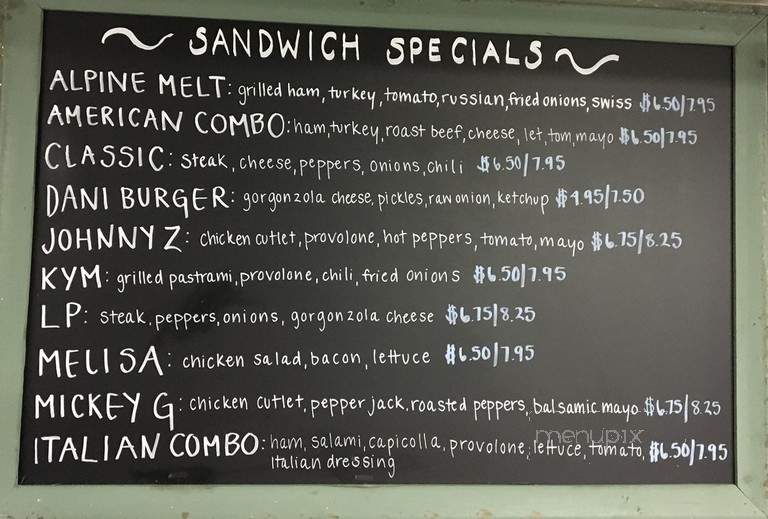 SANDWICH SPECIALS
ALPINE MELT: grilled ham, turkey, tomato, russian, fried onions, swiss $6.50/7.95
AMERICAN COMBO: ham, turkey, roast beef, cheese, let, tom, mayo $6.50/7.95
CLASSIC: steak, cheese, peppers, onions, chili $6.50/7.95
DANI BURGER: gorgonzola cheese, pickles, raw onion, ketchup $4.95/7.50
JOHNNY Z: chicken cutlet, provolone, hot peppers, tomato, mayo $6.75/8.25
KYM: grilled pastrami, provolone, chili, fried onions $6.50/7.95
LP: steak, peppers, onions, gorgonzola cheese $6.75/8.25
MELISA: chicken salad, bacon, lettuce $6.50/7.95
MICKEY G: chicken cutlet, pepper jack, roasted peppers, balsamic mayo $6.75/8.25
menupix
ITALIAN COMBO: ham, salami, capicolla, provolone, lettuce, tomato, $6.50/7.95
Italian dressing